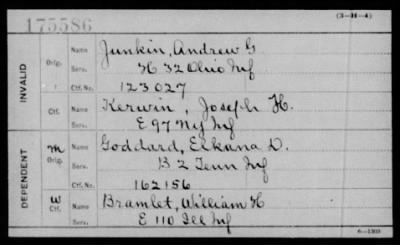 175586
(3-H-4)
INVALID
Orig. Name Junkin, Andrew G.
Serv. H 32 Ohio Inf
Ctf. No. 123027
Ctf. Name Kerwin, Joseph H.
Serv. E 97 NY Inf
DEPENDENT
M Orig. Name Goddard, Elkana D.
Serv. B 2 Tenn Inf
Ctf. No. 162156
W Ctf. Name Bramlet, William H
Serv. E 110 Ill Inf